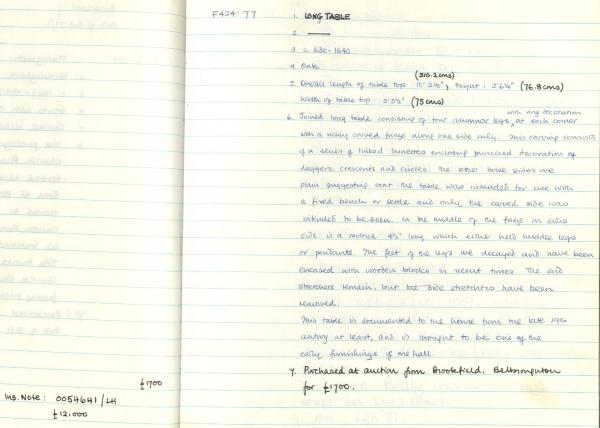 F424'77
1. LONG TABLE
2. ——
3. c. 1630-1640
4. Oak
(310.2cms)
5. Overall length of table top 10' 2⅛", Height: 2'6¼" (76.8cms)
Width of table top: 2'5½" (75cms)
with ring decoration
6. Joined long table consisting of four columnar legs, at each corner
with a richly carved frieze along one side only. This carving consists
of a series of linked lunettes enclosing punched decoration of
daggers, crescents and circles. The other three sides are
plain suggesting that the table was intended for use with
a fixed bench or settle and only the carved side was
intended to be seen. In the middle of the frieze on either
side is a mortice 4¾" long which either held middle legs
or pendants. The feet of the legs are decayed and have been
encased with wooden blocks in recent times. The end
stretchers remain, but the side stretchers have been
removed.
This table is documented to the house from the late 19th
century at least, and is thought to be one of the
early furnishings of the hall.
7. Purchased at auction from Brookfield,
for £1700.
£1700
Ins. Note: 0054641/LH
£12,000